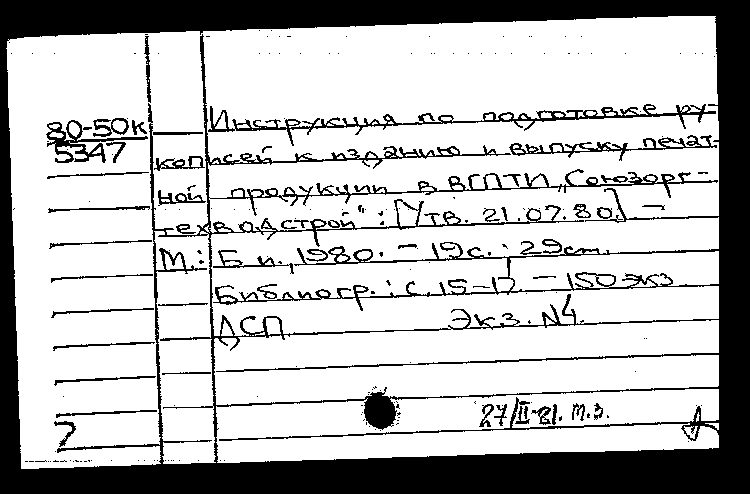 80-50к
5347
Инструкция по подготовке ру-
кописей к изданию и выпуску печат-
ной продукции в ВГПТИ „Союзорг-
техводстрой“: [Утв. 21.07.80.] —
М.: Б.и., 1980. — 19с. ; 29см.
Библиогр.: с. 15-17. — 150экз
ДСП Экз. №4.
27/II-81. т.з.